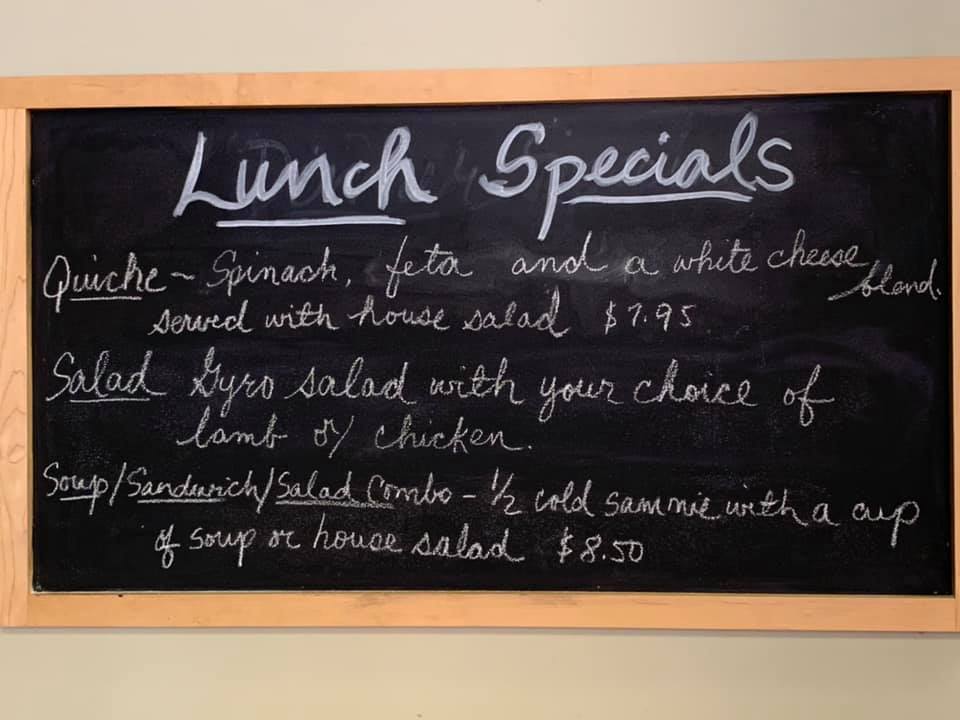 Lunch Specials
Quiche ~ Spinach, feta and a white cheese blend.
served with house salad $7.95
Salad Gyro salad with your choice of
lamb or chicken.
Soup/Sandwich/Salad Combo - 1/2 cold sammie with a cup
of soup or house salad $8.50